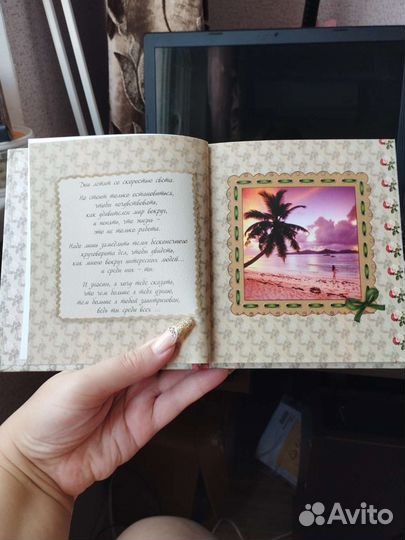 Дни летят со скоростью света.
Но стоит только остановиться,
чтобы почувствовать,
как удивителен мир вокруг,
и понять, что жизнь –
это не только работа.
Надо лишь замедлить темп бесконечного
круговорота дел, чтобы увидеть,
как много вокруг интересных людей...
и среди них – ты.
И знаешь, я хочу тебе сказать,
что чем больше я тебя узнаю,
тем больше я тобой заинтригован,
ведь ты среди всех ...
Avito